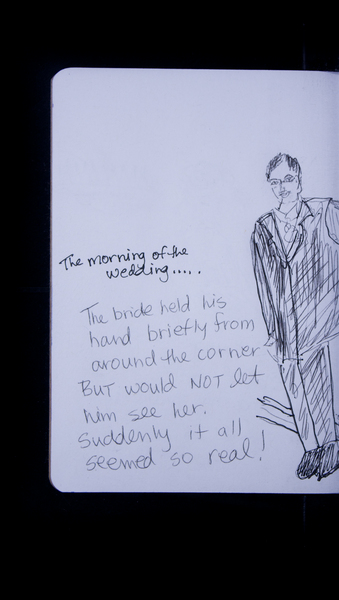 The morning of the
wedding.....
The bride held his
hand briefly from
around the corner
BUT would NOT let
him see her.
Suddenly it all
seemed so real!